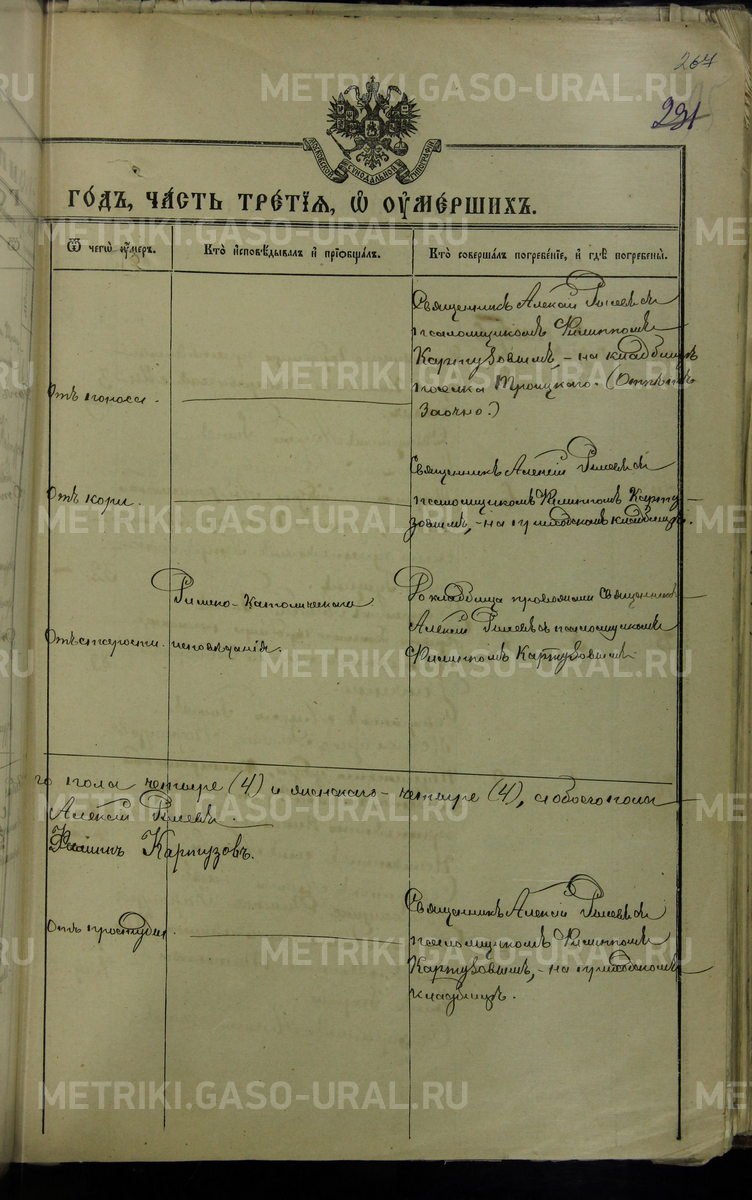 264
231
МОСКОВСКОЙ СУНОДАЛЬНОЙ ТИПОГРАФІИ
ГО́ДЪ, ЧА́СТЬ ТРЕ́ТІЯ, Ѿ ОУМЕ́РШИХЪ.
Ѿ чегѡ̀ оу́меръ.
Кто̀ и҆сповѣ́дывалъ и҆ прїѡбща́лъ.
Кто̀ соверша́лъ погребе́нїе, и҆ гдѣ̀ погребены̀.
Отъ поноса.
Священникъ Алексій Рылеевъ съ
псаломщикомъ Филиппомъ
Картузовымъ, - на кладбищѣ
поселка Троицкаго. (Отпѣтъ
Заочно.)
Отъ кори.
Священникъ Алексій Рылеевъ съ
псаломщикомъ Филиппомъ Карту-
зовымъ, - на кладбищѣ.
Отъ старости.
Римско-Католическаго
исповѣданія.
До кладбища провожали Священникъ
Алексій Рылеевъ съ псаломщикомъ
Филиппомъ Картузовымъ
го пола четыре (4) и женскаго - четыре (4), а обоего пола
Алексій Рылеевъ.
Филиппъ Картузовъ.
Отъ простуды.
Священникъ Алексій Рылеевъ съ
псаломщикомъ Филиппомъ
Картузовымъ, - на
кладбищѣ.
METRIKI.GASO-URAL.RU